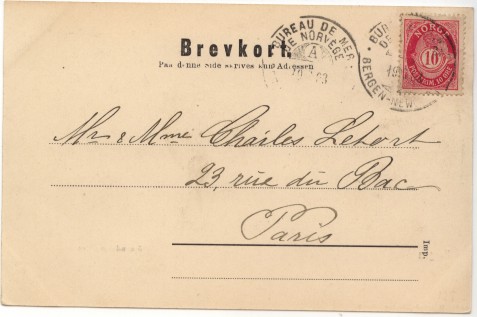 Brevkort.
Paa denne side skrives kun Adressen
BUREAU DE MER
DE NORVÈGE
A
BUR
DE
BERGEN-NEW
NORGE
10
POSTFRIM. 10 ØRE
Mr & Mme Charles Letort
23, rue du Bac
Paris
Imp.